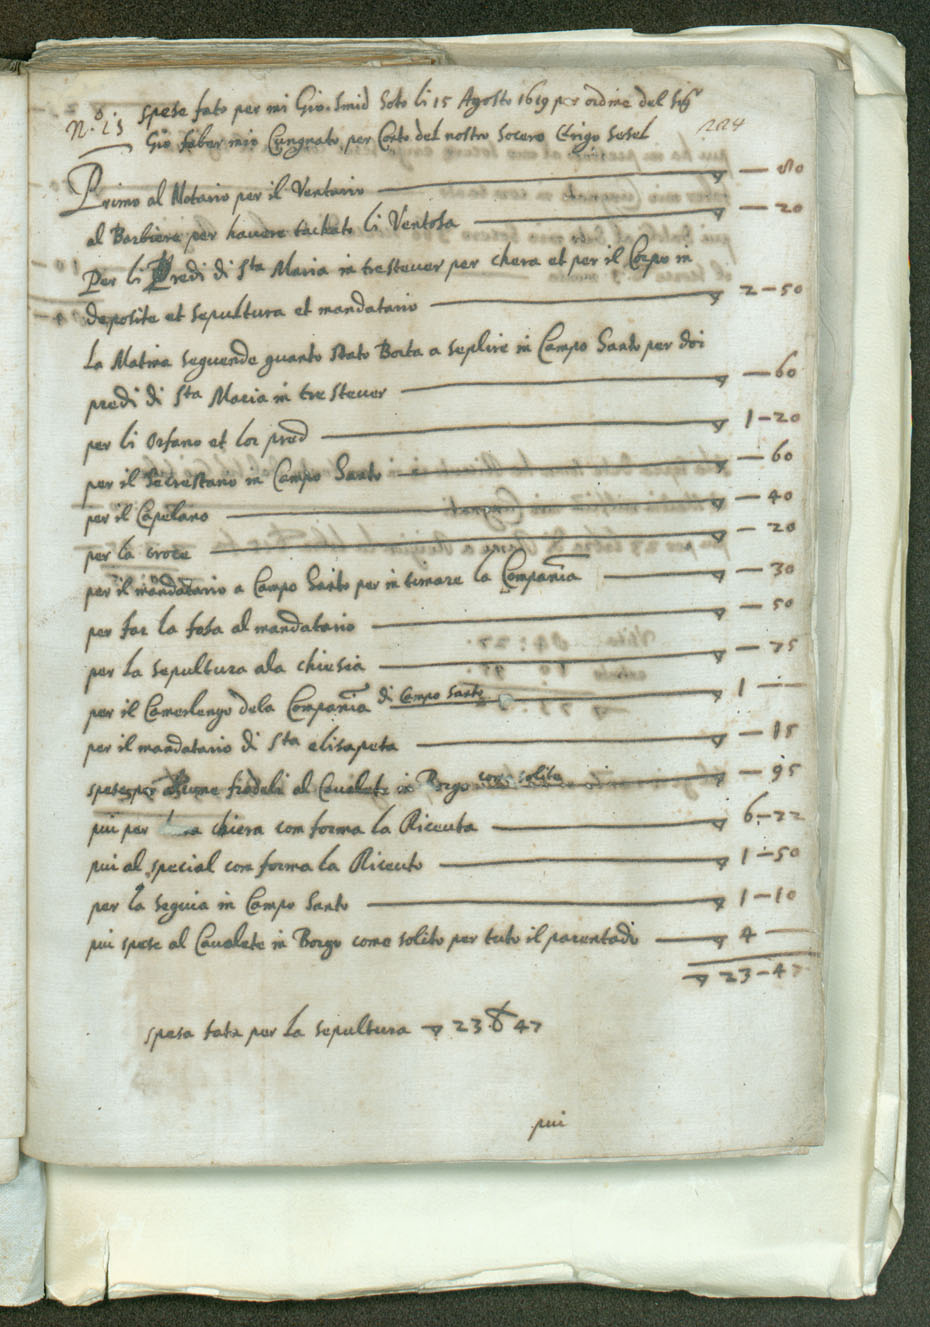 spese fato per mi Gio. Smid Soto li 15 Agosto 1619 per ordine del Sigr
N.o 13
224
Gio faber mio Cungnato per Conto del nostro Socero Erigo Sesel
Primo al Notario per il Ventario — 80
al Barbiere per havere tachato li Ventosa — 20
Per li Predi di Sta Maria in tresteuer per chera et per il Corpo in
deposite et sepultura et mandatario 2—50
La Matina seguende quanto stato Borta a seplire in Campo Santo per doi
predi di Sta Maria in tre steuer — 60
per li Orfano et lor pred 1—20
per il Secrestano in Campo Santo — 60
per il Capelano — 40
per la croce — 20
per il mandatario a Campo Santo per in timare la Compania — 30
per far la fosa al mandatario — 50
per la sepultura ala chiesia — 75
per il Camerlengo dela Compania di Campo Santo 1 —
per il mandatario di Sta elisapeta — 15
spese per fradeli al Caualete in Borgo come solito — 95
piu per chiera com forma la Riceuta 6—22
piu al special com forma la Riceuto 1—50
per la seguia in Campo Santo 1—10
piu spese al Caualete in Borgo come solito per tuto il parentado 4 —
23—47
spesa fata per la sepultura 23 47
piu